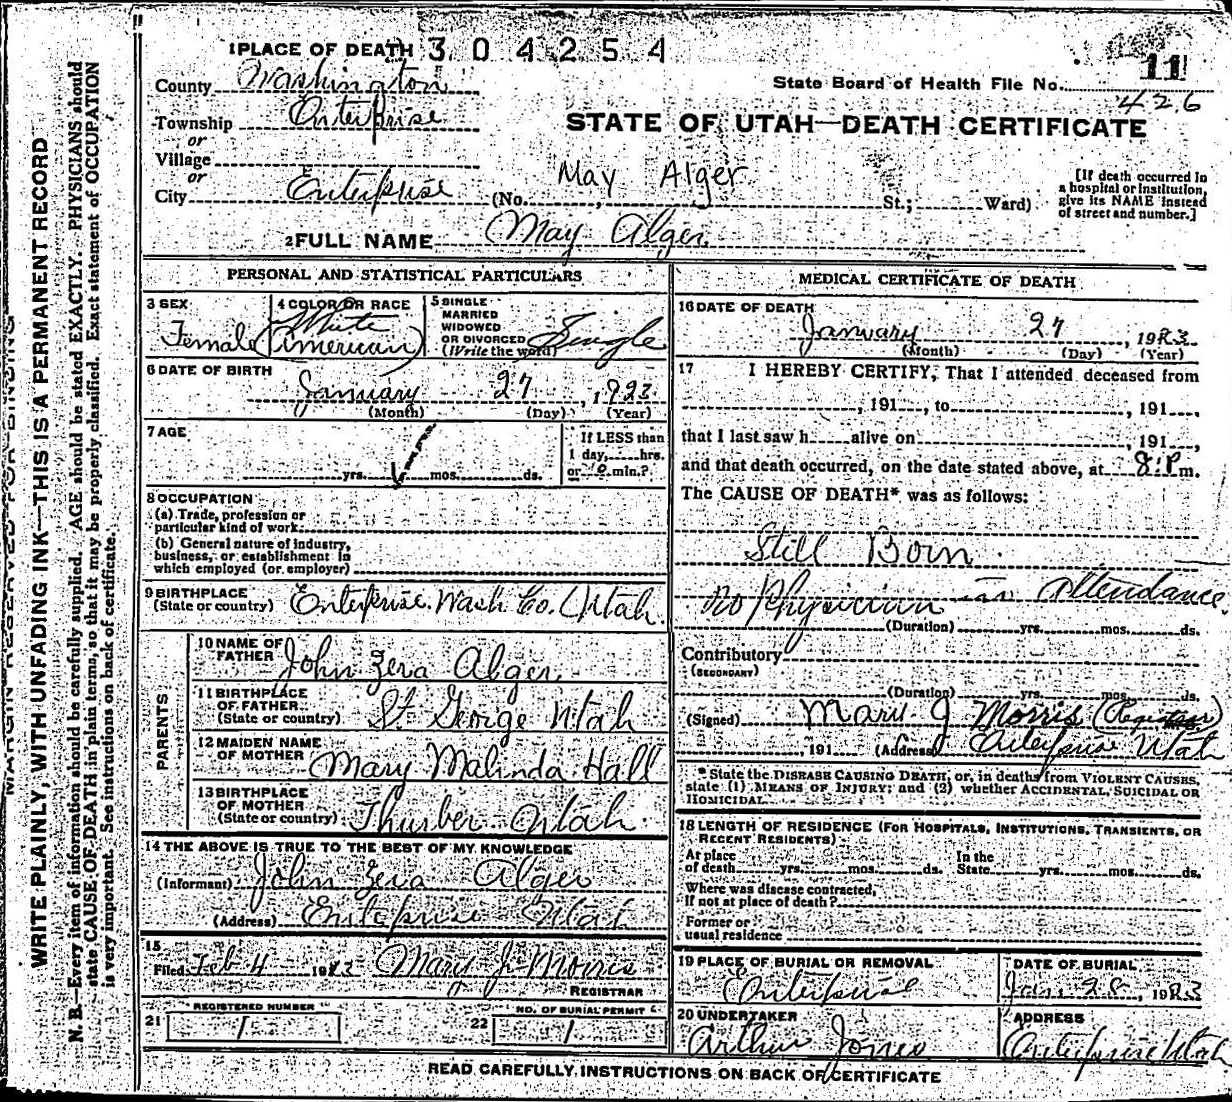 1 PLACE OF DEATH 304254
11
State Board of Health File No.
426
County Washington
Township Enterprise
STATE OF UTAH—DEATH CERTIFICATE
or
Village
or
City Enterprise
May Alger
(No. St.; Ward)
[If death occurred in
a hospital or institution,
give its NAME instead
of street and number.]
2 FULL NAME May Alger
PERSONAL AND STATISTICAL PARTICULARS
3 SEX
Female
4 COLOR OR RACE
White
(American)
5 SINGLE
MARRIED
WIDOWED
OR DIVORCED
(Write the word)
Single
6 DATE OF BIRTH
January 27, 1923
(Month) (Day) (Year)
7 AGE
yrs. mos. ds.
If LESS than
1 day, hrs.
or 0 min.?
8 OCCUPATION
(a) Trade, profession or
particular kind of work
(b) General nature of industry,
business, or establishment in
which employed (or employer)
9 BIRTHPLACE
(State or country) Enterprise. Wash Co. Utah
PARENTS
10 NAME OF
FATHER John Zera Alger
11 BIRTHPLACE
OF FATHER
(State or country) St George Utah
12 MAIDEN NAME
OF MOTHER Mary Malinda Hall
13 BIRTHPLACE
OF MOTHER
(State or country) Thurber Utah.
14 THE ABOVE IS TRUE TO THE BEST OF MY KNOWLEDGE
(Informant) John Zera Alger
(Address) Enterprise Utah
15
Filed Feb 4 1923 Mary J. Morris
REGISTRAR
REGISTERED NUMBER
21 1
NO. OF BURIAL PERMIT
22 1
MEDICAL CERTIFICATE OF DEATH
16 DATE OF DEATH
January 27, 1923
(Month) (Day) (Year)
17 I HEREBY CERTIFY, That I attended deceased from
, 191 , to , 191 ,
that I last saw h alive on , 191 ,
and that death occurred, on the date stated above, at 8:P m.
The CAUSE OF DEATH* was as follows:
Still Born.
no Physician in Attendance
(Duration) yrs. mos. ds.
Contributory
(SECONDARY)
(Duration) yrs. mos. ds.
(Signed) Mary J Morris (Registrar)
, 191 (Address) Enterprise Utah
*State the DISEASE CAUSING DEATH, or, in deaths from VIOLENT CAUSES,
state (1) MEANS OF INJURY; and (2) whether ACCIDENTAL, SUICIDAL OR
HOMICIDAL.
18 LENGTH OF RESIDENCE (FOR HOSPITALS, INSTITUTIONS, TRANSIENTS, OR
RECENT RESIDENTS)
At place
of death yrs. mos. ds.
In the
State yrs. mos. ds.
Where was disease contracted,
If not at place of death?
Former or
usual residence
19 PLACE OF BURIAL OR REMOVAL
Enterprise
DATE OF BURIAL
Jan 28, 1923
20 UNDERTAKER
Arthur Jones
ADDRESS
Enterprise Utah
READ CAREFULLY INSTRUCTIONS ON BACK OF CERTIFICATE
MARGIN RESERVED FOR BINDING
WRITE PLAINLY, WITH UNFADING INK—THIS IS A PERMANENT RECORD
N. B.—Every item of information should be carefully supplied. AGE should be stated EXACTLY. PHYSICIANS should
state CAUSE OF DEATH in plain terms, so that it may be properly classified. Exact statement of OCCUPATION
is very important. See instructions on back of certificate.